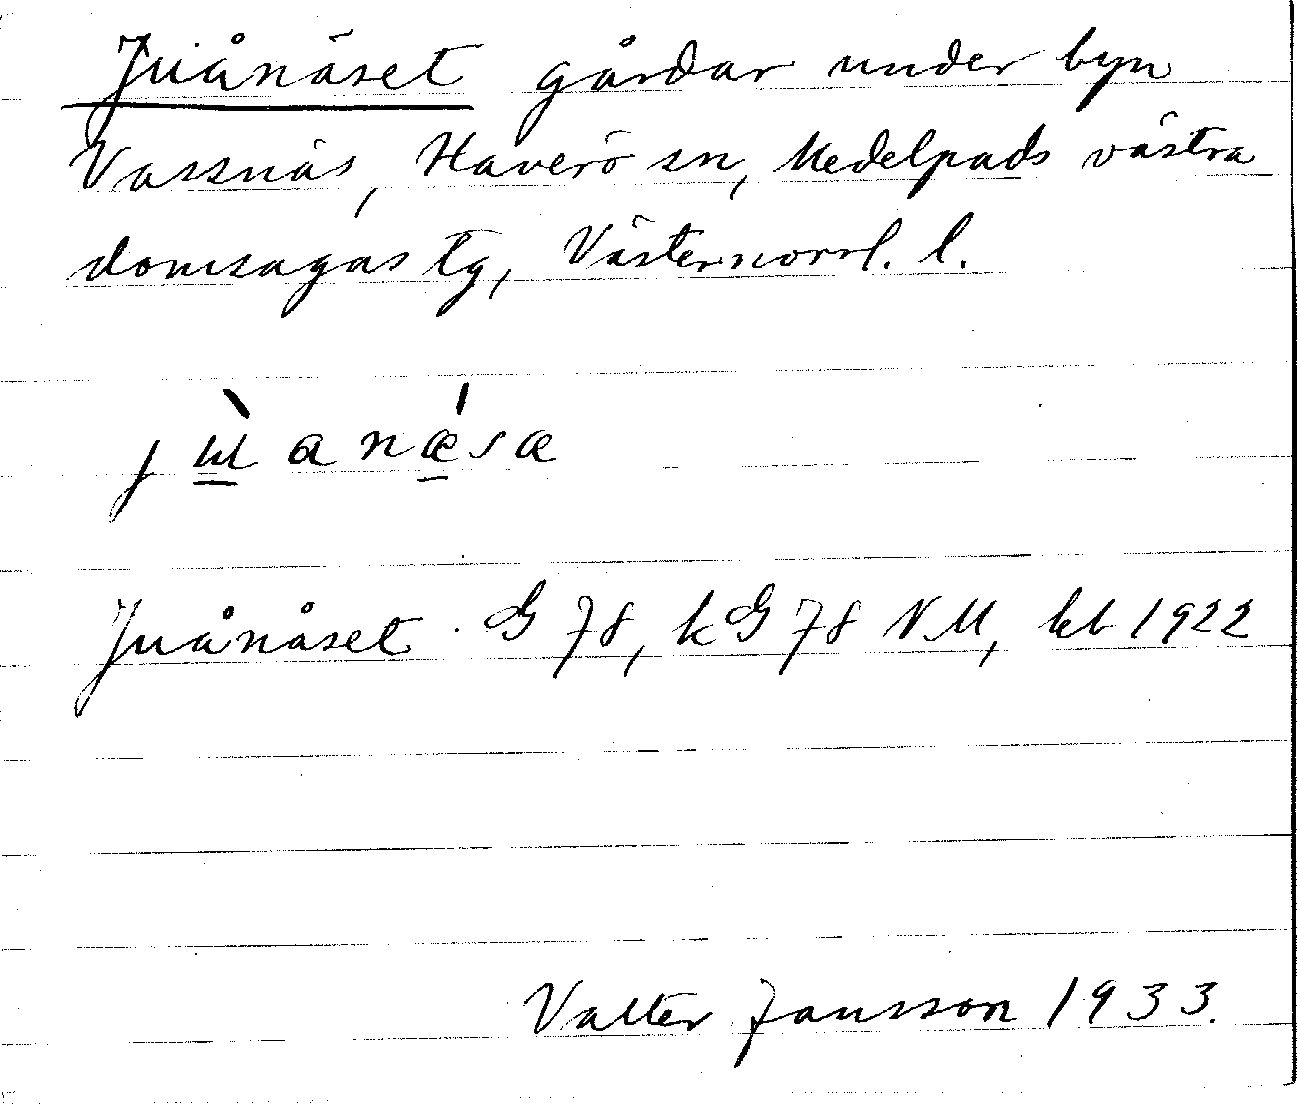 Juånäset gårdar under byn
Vassnäs, Haverö sn, Medelpads västra
domsagas tg, Västernorrl. l.
jɯ̀anǽsæ
Juånåset. G 78, kG 78 NM, kb 1922
Valter Jansson 1933.